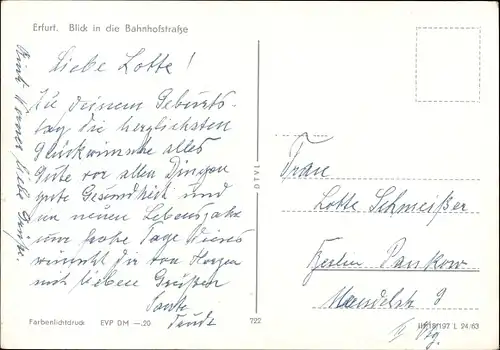 Erfurt. Blick in die Bahnhofstraße
Liebe Lotte!
Zu deinem Geburts-
tag die herzlichsten
Glückwünsche alles
Gute vor allen Dingen
gute Gesundheit und
im neuen Lebensjahr
nur frohe Tage dieses
wünscht dir von Herzen
mit lieben Grüßen
Tante
Werner liebe Grüße.
DTVL
Frau
Lotte Schmeißer
Berlin Pankow
Mendelstr 9
Farbenlichtdruck EVP DM —.20 722
III/18/197 L 24/63